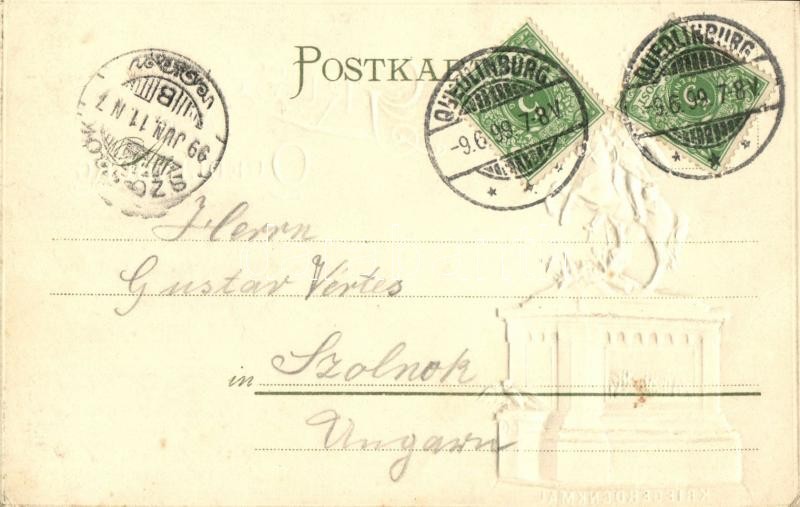 POSTKA
QUEDLINBURG
-9.6.99. 7-8V.
QUEDLINBURG
-9.6.99. 7-8V.
5
99 JUN. 11. N 7
B
Herrn
Gustav Vértes
in Szolnok
Ungarn
KRIEGERDENKMAL